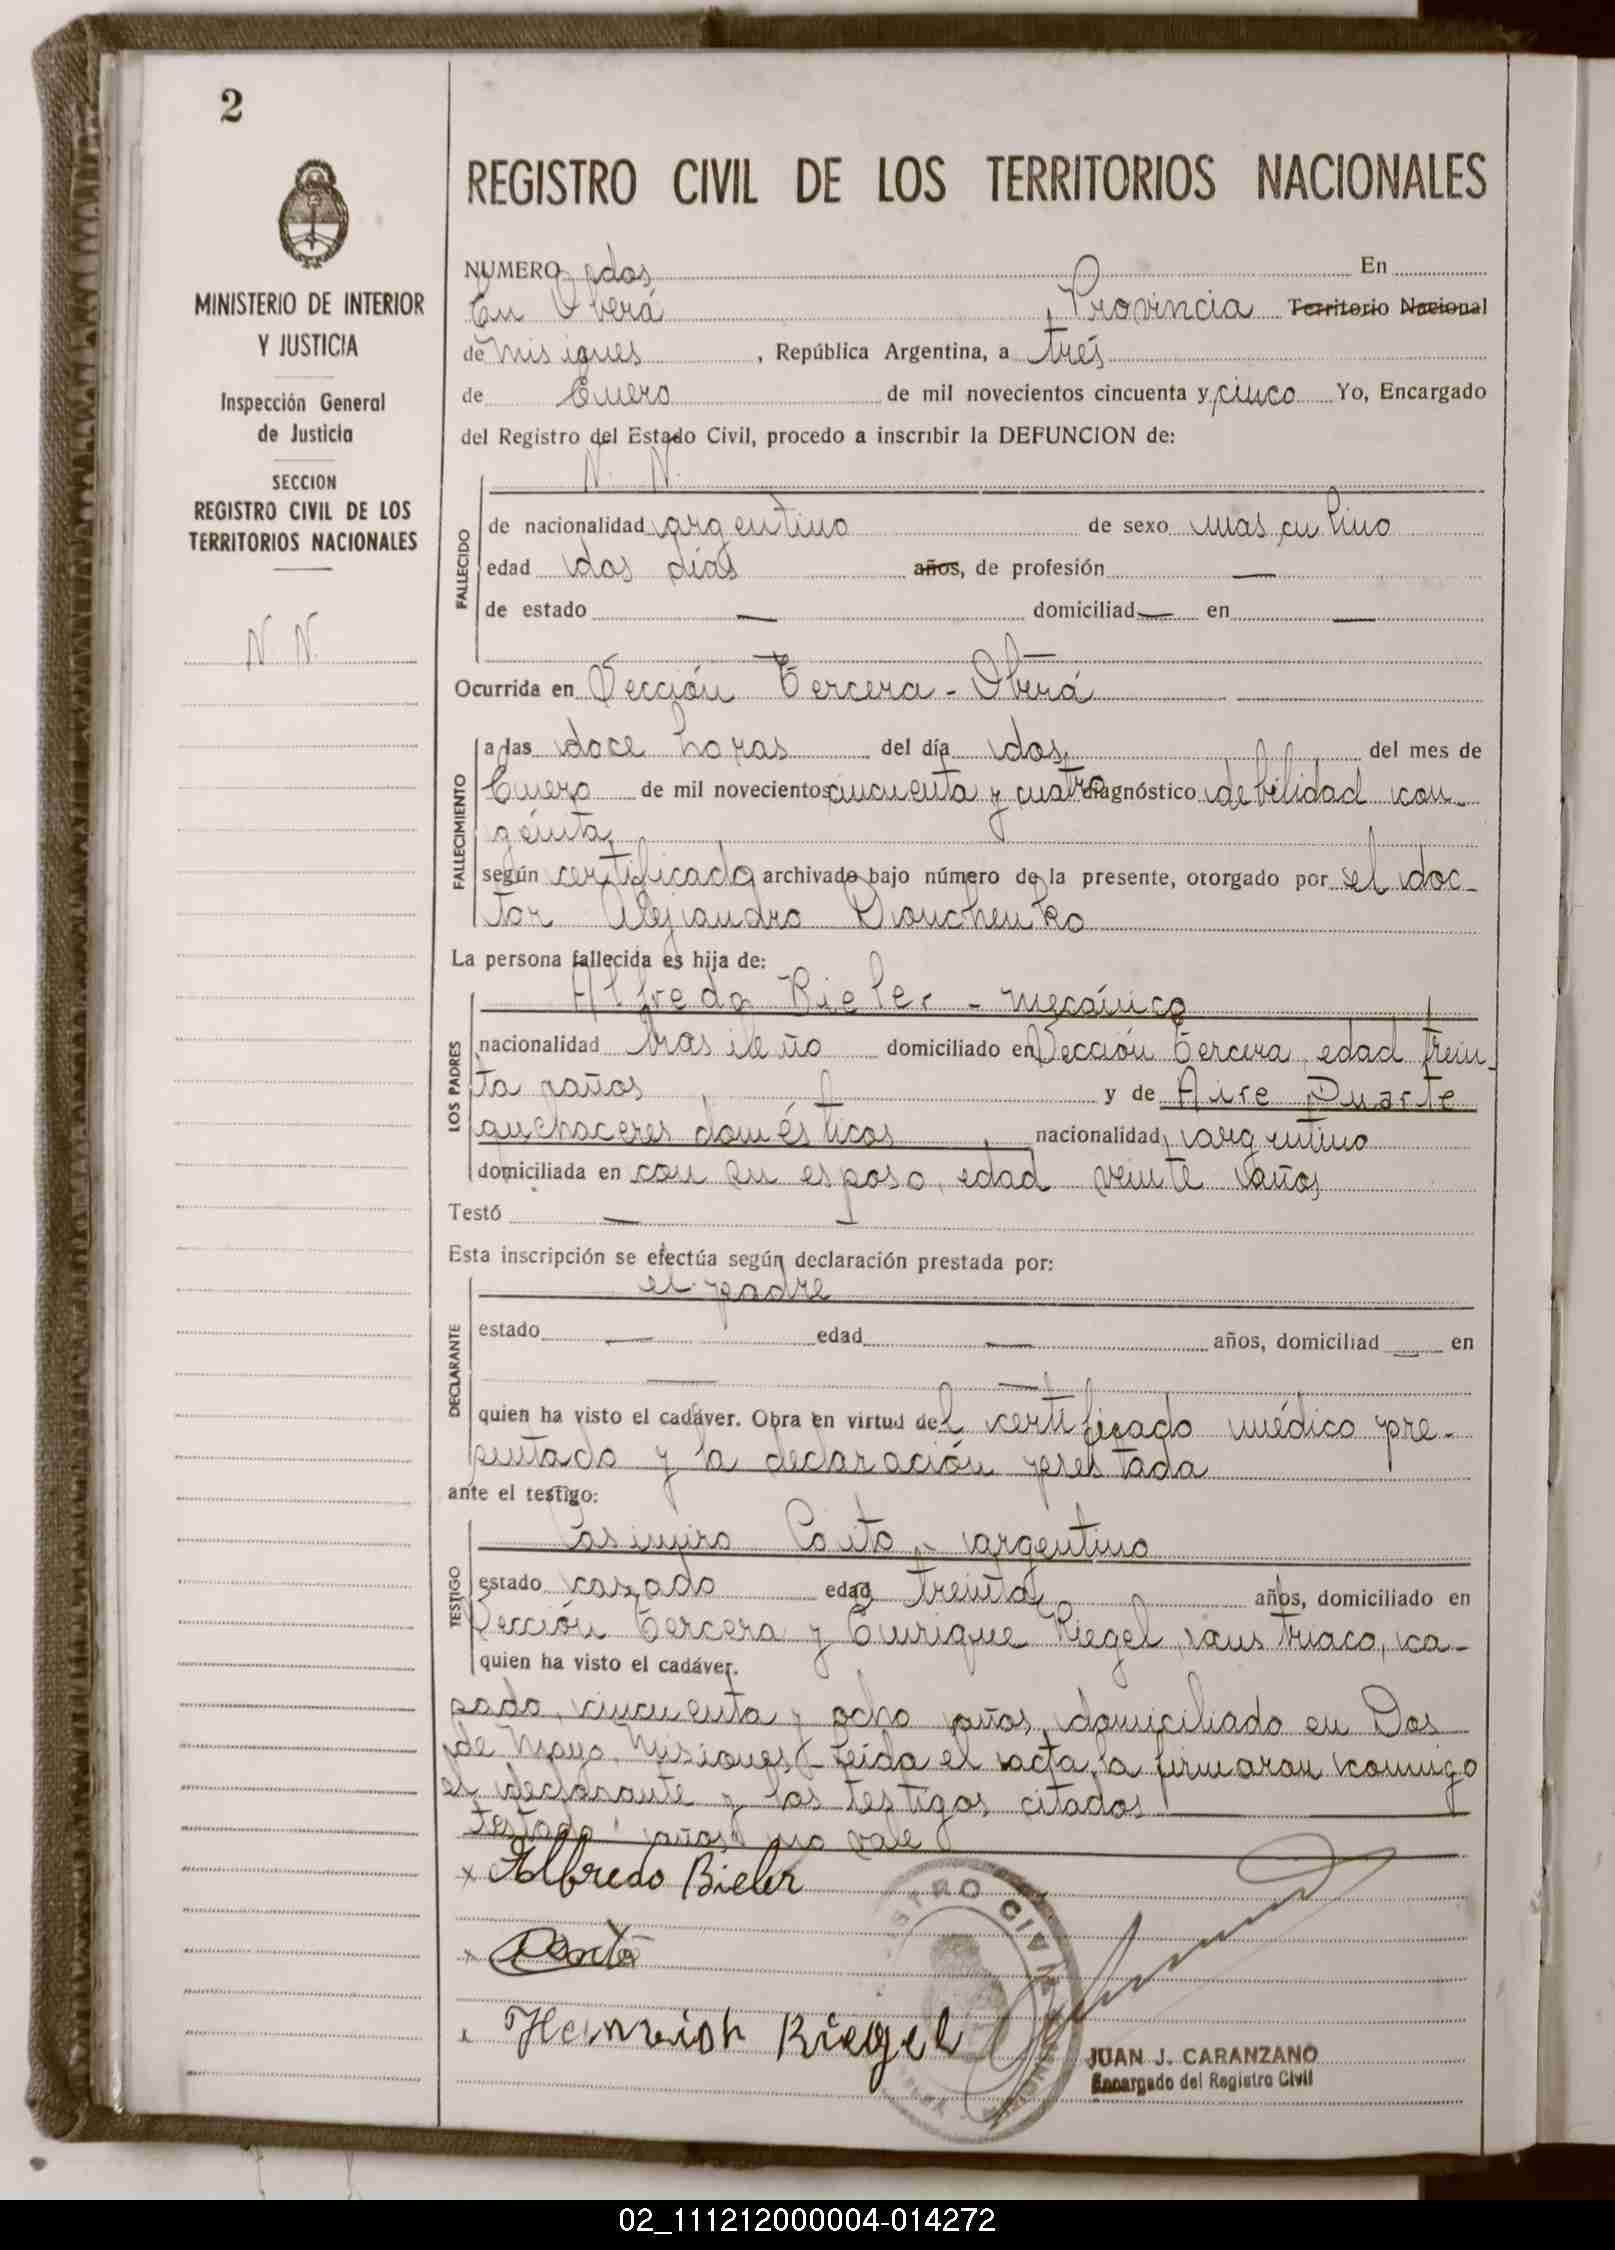 2
REGISTRO CIVIL DE LOS TERRITORIOS NACIONALES
MINISTERIO DE INTERIOR
Y JUSTICIA
Inspección General
de Justicia
SECCION
REGISTRO CIVIL DE LOS
TERRITORIOS NACIONALES
N. N.
NUMERO dos En
En Oberá Provincia Territorio Nacional
de Misiones, República Argentina, a tres
de Enero de mil novecientos cincuenta y cinco Yo, Encargado
del Registro del Estado Civil, procedo a inscribir la DEFUNCION de:
N. N.
FALLECIDO
de nacionalidad argentino de sexo masculino
edad dos días años, de profesión —
de estado — domiciliad — en —
Ocurrida en Sección Tercera - Oberá
FALLECIMIENTO
a las doce horas del día dos del mes de
Enero de mil novecientos cincuenta y cuatro diagnóstico debilidad con-
génita
según certificado archivado bajo número de la presente, otorgado por el doc-
tor Alejandro
La persona fallecida es hija de:
LOS PADRES
Alfredo Bieler - mecánico
nacionalidad brasileño domiciliado en Sección Tercera, edad trein-
ta años y de Aire Duarte
quehaceres domésticos, nacionalidad argentino
domiciliada en con su esposo, edad veinte años
Testó —
Esta inscripción se efectúa según declaración prestada por:
DECLARANTE
el padre
estado — edad — años, domiciliad — en
— —
quien ha visto el cadáver. Obra en virtud del certificado médico pre-
sentado y la declaración prestada
ante el testigo:
TESTIGO
Casimiro Couto - argentino
estado casado edad treinta años, domiciliado en
Sección Tercera y Enrique Riegel, austriaco, ca-
quien ha visto el cadáver.
sado, cincuenta y ocho años, domiciliado en Dos
de Mayo, Misiones - Leída el acta, la firmaron conmigo
el declarante y los testigos citados
testado "años" no vale
x Alfredo Bieler
x
x Heinrich Riegel
REGISTRO CIVIL
JUAN J. CARANZANO
Encargado del Registro Civil
02_111212000004-014272